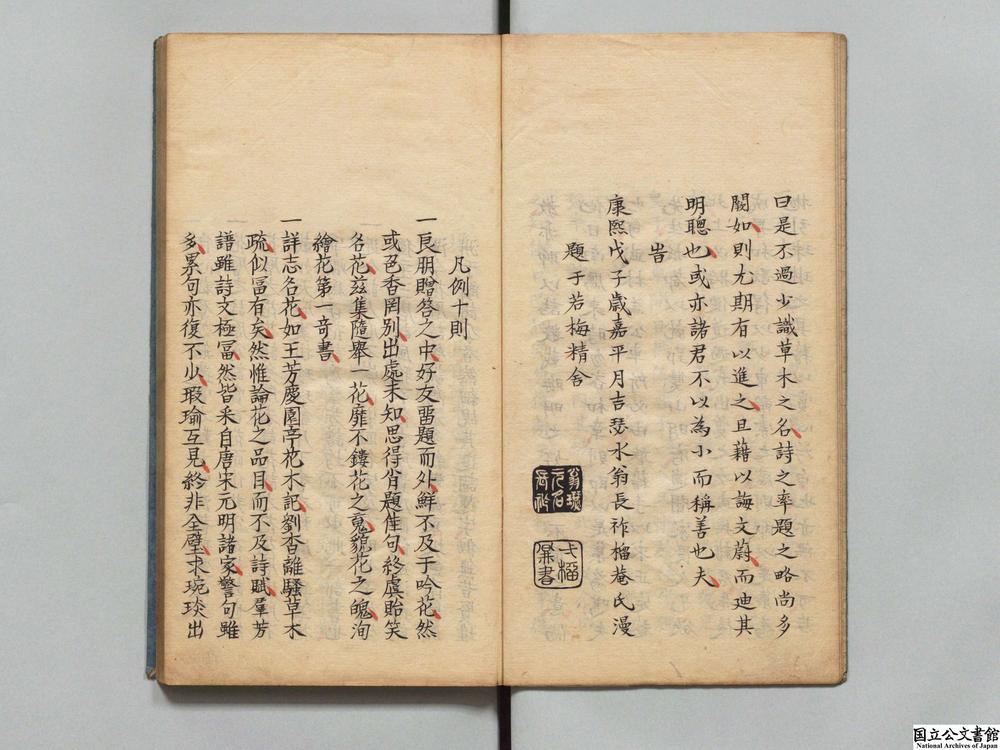 曰是不過少識草木之名詩之率題之略尚多
闕如則尤期有以進之且藉以誨文蔚而迪其
明聰也或亦諸君不以為小而稱善也夫
旹
康熙戊子歲嘉平月吉瑟水翁長祚榴菴氏漫
題于若梅精舍
凡例十則
一良朋贈答之中好友畱題而外鮮不及于吟花然
或色香罔別出處未知思得肖題佳句終虞貽笑
名花茲集隨舉一花靡不鏤花之䰟貌花之魄洵
繪花第一竒書
一詳志名花如王芳慶園亭花木記劉杳離騷草木
疏似冨有矣然惟論花之品目而不及詩賦羣芳
譜雖詩文極冨然皆采自唐宋元明諸家警句雖
多累句亦復不少瑕瑜互見終非全璧求琬琰出
国立公文書館
National Archives of Japan